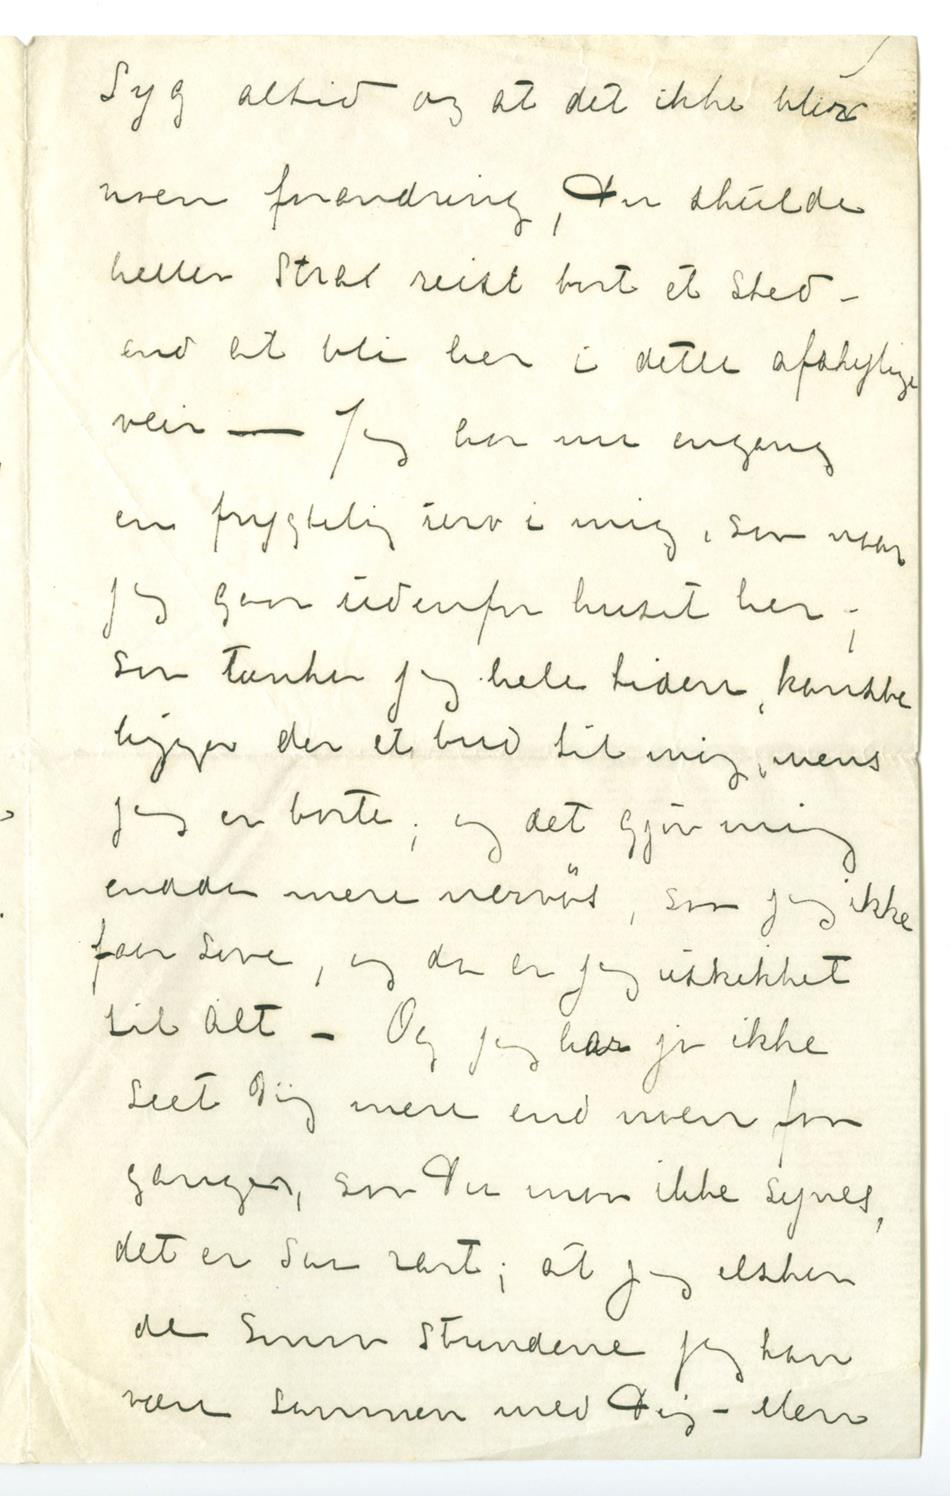 Syg altid og at det ikke blir
noen forandring, Du skulde
heller strax reist bort et sted –
end at bli her i dette afskylige
veir — Jeg har nu engang
en frygtelig uro i mig, som naar
jeg gaar udenfor huset her;
saa tænker jeg hele tiden, kanske
ligger der et bud til mig, mens
jeg er borte; og det gjør mig
endda mere nervøs, saa jeg ikke
faar sove, og da er jeg uskikket
til alt – Og jeg har jo ikke
seet Dig mere end noen faa
ganger, saa Du maa ikke synes,
det er saa rart; at jeg elsker
de smaa stundene jeg kan
være sammen med Dig – Men